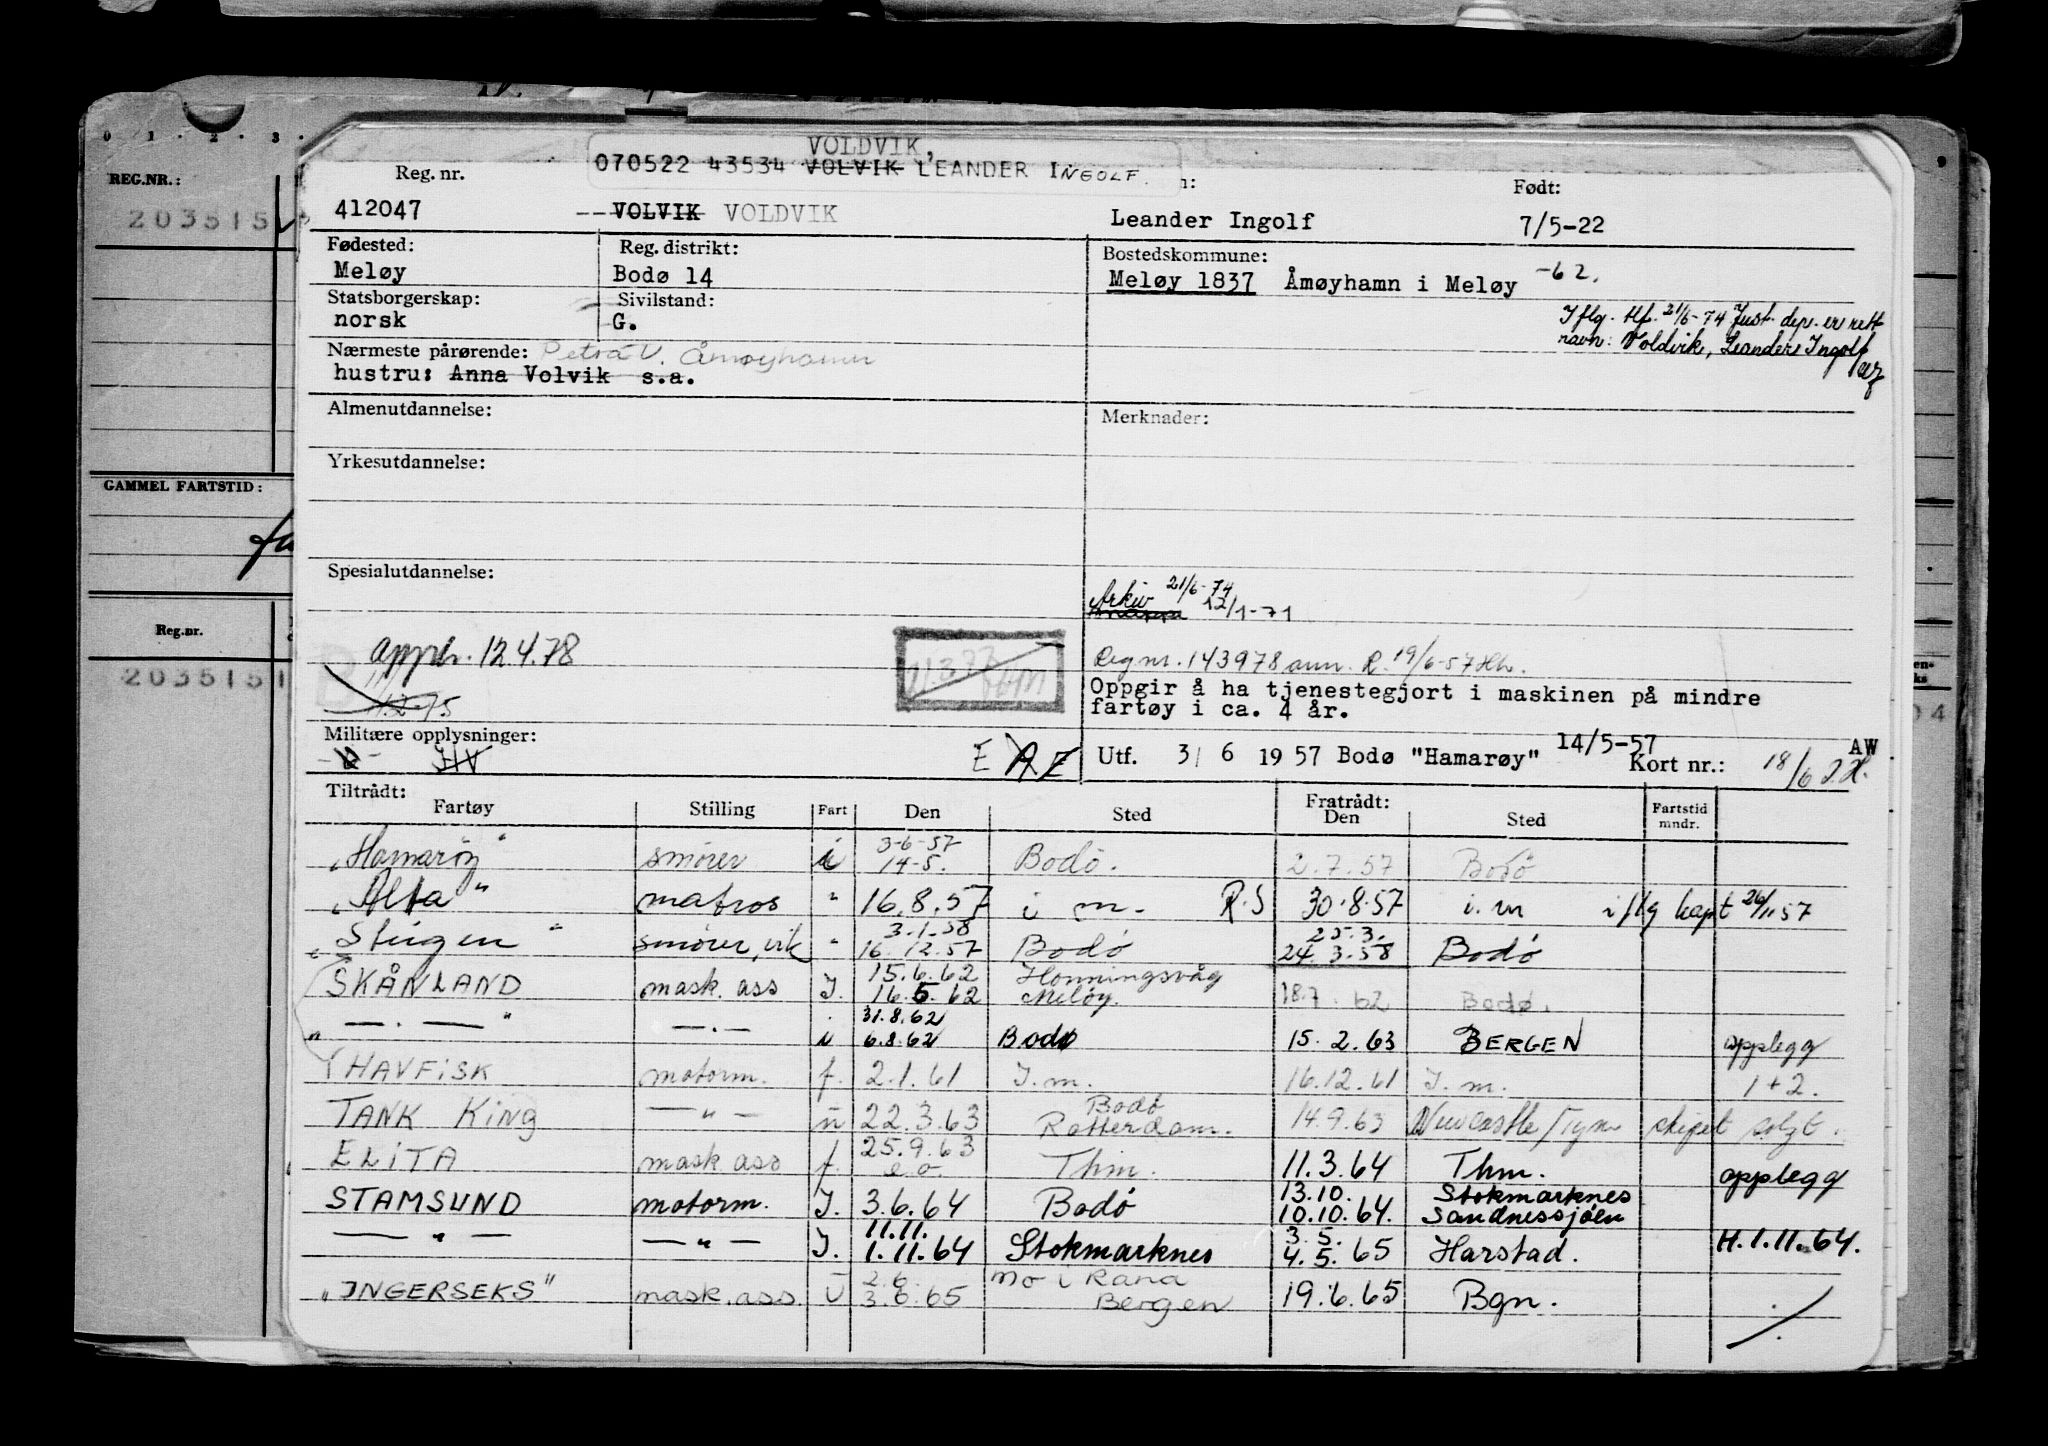 0 1 2 3
REG.NR.:
203515
GAMMEL FARTSTID:
Reg.nr.
2035151
VOLDVIK,
070522 43534 VOLVIK LEANDER INGOLF
Reg. nr.
Født:
412047 --VOLVIK VOLDVIK Leander Ingolf 7/5-22
Fødested: Reg. distrikt: Bostedskommune:
Meløy Bodø 14 Meløy 1837 Åmøyhamn i Meløy -62.
Statsborgerskap: Sivilstand:
norsk G.
Iflg. tlf. 21/6-74 Just. dep. er rett
navn: Voldvik, Leander Ingolf
Nærmeste pårørende: Petra V. Åmøyhamn
hustru: Anna Volvik s.a.
Almenutdannelse: Merknader:
Yrkesutdannelse:
Spesialutdannelse:
Arkiv 21/6-74
12/1-71
apprb. 12.4.78
Reg nr. 143978 ann. R. 19/6-57
Oppgir å ha tjenestegjort i maskinen på mindre
fartøy i ca. 4 år.
Militære opplysninger:
HV E A E
Utf. 3/ 6 1957 Bodø "Hamarøy" 14/5-57 Kort nr.: 18/6 AW
Tiltrådt: Fratrådt:
Fartøy Stilling Fart Den Sted Den Sted Fartstid mndr.
"Hamarøy" smører i 3-6-57 14-5. Bodø. 2.7.57 Bodø
"Alta" matros " 16.8.57 i m. R.S 30.8.57 i. m iflg kapt 26/11.57
"Steigen" smører, vik " 3.1.58 16.12.57 Bodø 25.3. 24.3.58 Bodø
SKÅNLAND mask. ass I. 15.6.62 16.5.62 Honningsvåg Meløy. 18.7.62 Bodø.
— . — " — . — i 31.8.62 6.8.62 Bodø 15.2.63 BERGEN opplegg
HAVFISK motorm. f. 2.1.61 I.m. 16.12.61 I.m. 1+2.
TANK KING — " — ü 22.3.63 Bodø Rotterdam. 14.9.63 Newcastle/Tyne skipet solgt.
ELITA mask ass f. 25.9.63 e.o. Thm. 11.3.64 Thm. opplegg
STAMSUND motorm. I. 3.6.64 Bodø 13.10. 10.10.64. Stokmarknes Sandnessjøen
— " — — " — I. 11.11. 1.11.64 Stokmarknes 3.5. 4.5.65 Harstad. H.1.11.64.
"INGERSEKS" mask. ass. U 2.6. 3.6.65 Mo i Rana Bergen 19.6.65 Bgn.